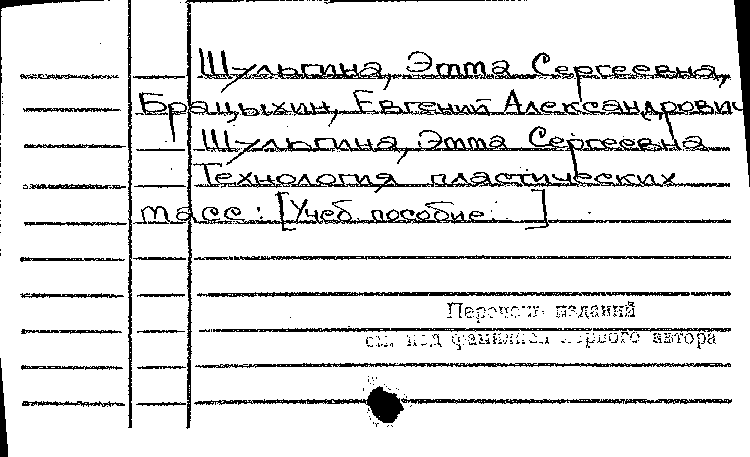 Шульгина, Этта Сергеевна,
Брацыхин, Евгений Александрович
Шульгина, Этта Сергеевна
Технология пластических
масс: [Учеб. пособие. ]
Перечень изданий
см. под фамилией первого автора